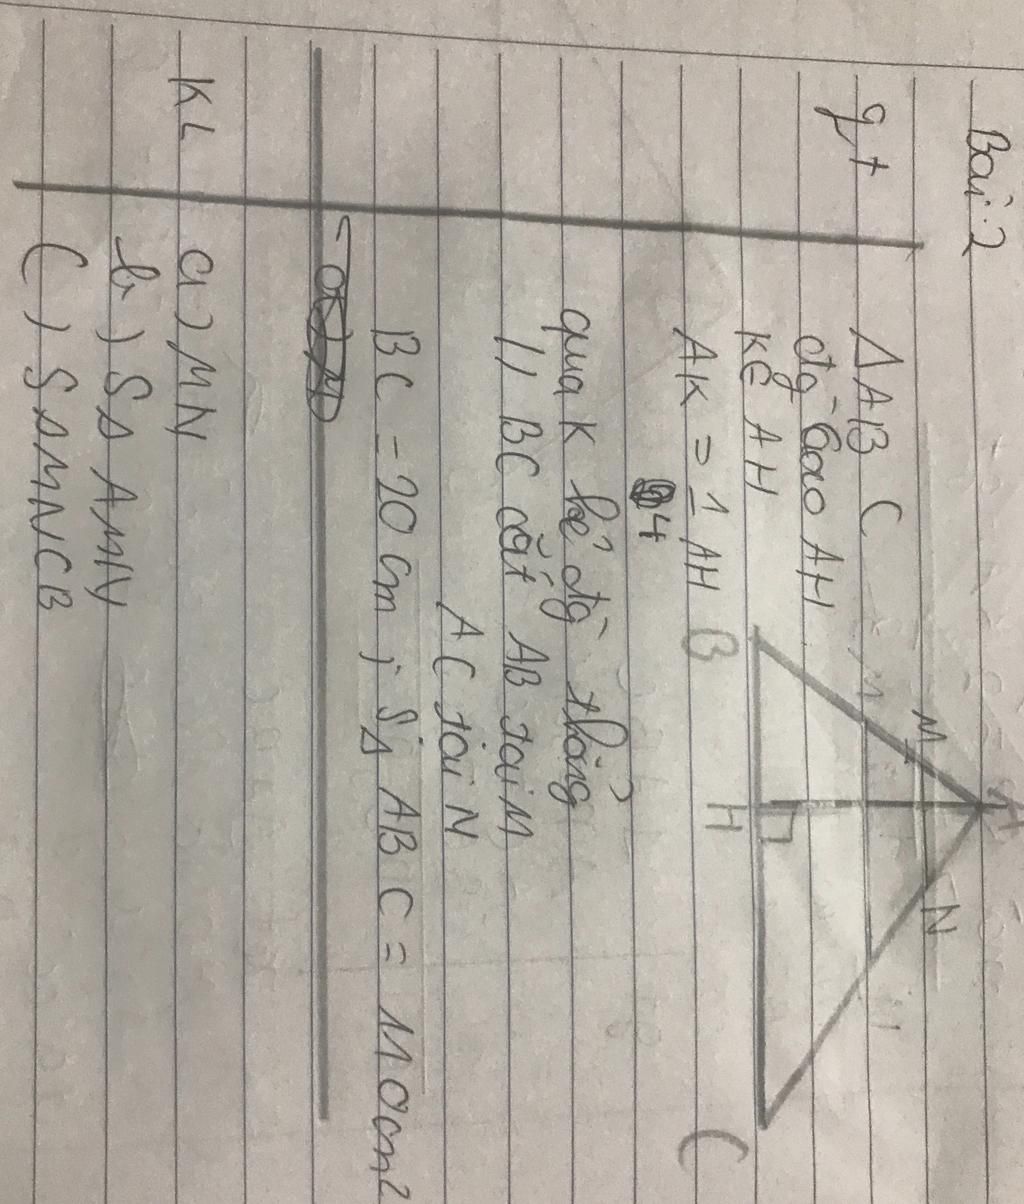 Bài 2
A
M
N
B
H
C
gt
Δ AB C
đg cao AH
KE AH
AK = 1 AH
4
qua K kẻ đg thẳng
// BC cắt AB tại M
AC tại N
BC = 20 cm ; SΔ ABC = 110cm2
KL
a) MN
b) SΔ AMN
C) SΔMNCB